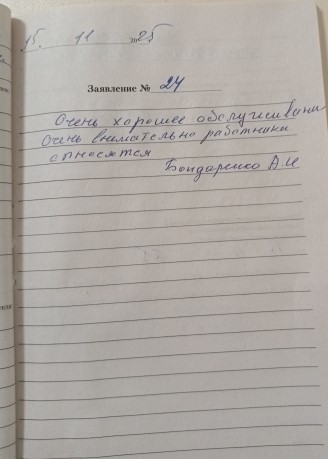 15. 11 2025
Заявление № 24
Очень хорошее обслуживани
Очень внимательно работники
относятся
Бондаренко А.И